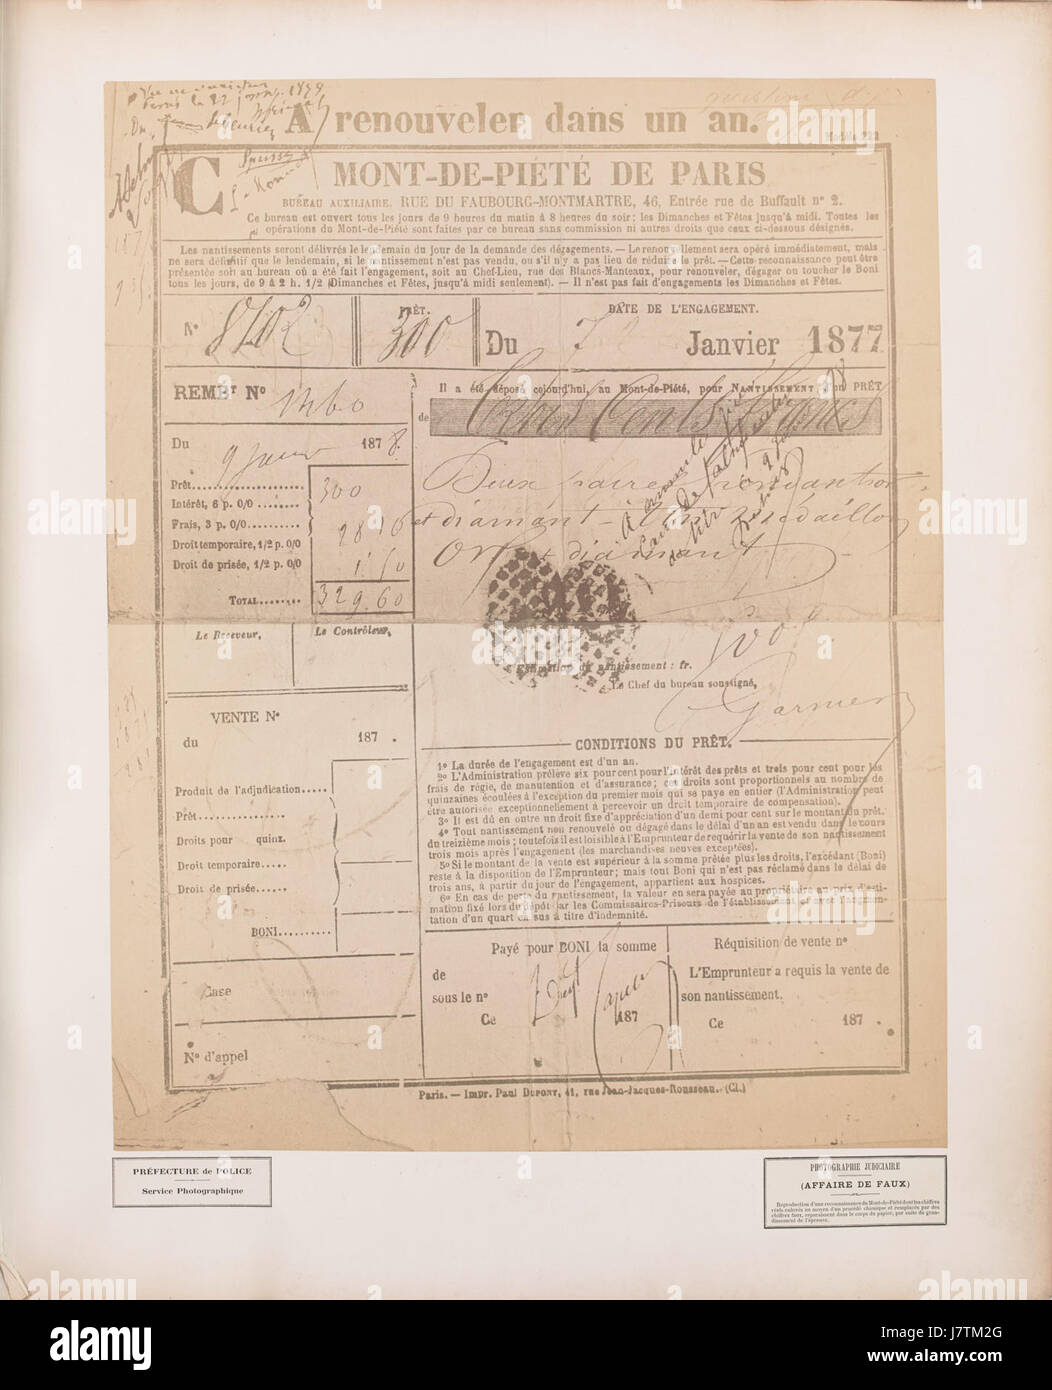 A renouveler dans un an.
C
MONT-DE-PIÉTÉ DE PARIS
BUREAU AUXILIAIRE, RUE DU FAUBOURG-MONTMARTRE, 46, Entrée rue de Buffault nº 2.
Ce bureau est ouvert tous les jours de 9 heures du matin à 8 heures du soir; les Dimanches et Fêtes jusqu'à midi. Toutes les
opérations du Mont-de-Piété sont faites par ce bureau sans commission ni autres droits que ceux ci-dessous désignés.
Les nantissements seront délivrés le lendemain du jour de la demande des dégagements. — Le renouvellement sera opéré immédiatement, mais
ne sera définitif que le lendemain, si le nantissement n'est pas vendu, ou s'il n'y a pas lieu de réduire le prêt. — Cette reconnaissance peut être
présentée soit au bureau où a été fait l'engagement, soit au Chef-Lieu, rue des Blancs-Manteaux, pour renouveler, dégager ou toucher le Boni
tous les jours, de 9 à 2 h. 1/2 (Dimanches et Fêtes, jusqu'à midi seulement). — Il n'est pas fait d'engagements les Dimanches et Fêtes.
Nº
PRÊT.
300
DATE DE L'ENGAGEMENT.
Du 7 Janvier 1877
REMBt Nº
Il a été déposé cejourd'hui, au Mont-de-Piété, pour NANTISSEMENT d'un PRÊT
de Cents francs
Du 9 187 8.
Deux paires
Prêt 300
Intérêt, 6 p. 0/0
et diamant médaillon
Frais, 3 p. 0/0
Or et diamant
Droit temporaire, 1/2 p. 0/0
Droit de prisée, 1/2 p. 0/0
TOTAL 329.60
Le Receveur,
Le Contrôleur,
Estimation du nantissement : fr.
Le Chef du bureau soussigné,
Garnier
VENTE Nº
du 187 .
Produit de l'adjudication
Prêt
Droits pour quinz.
Droit temporaire
Droit de prisée
BONI
Case
Nº d'appel
CONDITIONS DU PRÊT.
1º La durée de l'engagement est d'un an.
2º L'Administration prélève six pour cent pour l'intérêt des prêts et trois pour cent pour les
frais de régie, de manutention et d'assurance; ces droits sont proportionnels au nombre de
quinzaines écoulées à l'exception du premier mois qui se paye en entier (l'Administration peut
être autorisée exceptionnellement à percevoir un droit temporaire de compensation).
3º Il est dû en outre un droit fixe d'appréciation d'un demi pour cent sur le montant du prêt.
4º Tout nantissement non renouvelé ou dégagé dans le délai d'un an est vendu dans le cours
du treizième mois; toutefois il est loisible à l'Emprunteur de requérir la vente de son nantissement
trois mois après l'engagement (les marchandises neuves exceptées).
5º Si le montant de la vente est supérieur à la somme prêtée plus les droits, l'excédant (Boni)
reste à la disposition de l'Emprunteur; mais tout Boni qui n'est pas réclamé dans le délai de
trois ans, à partir du jour de l'engagement, appartient aux hospices.
6º En cas de perte du nantissement, la valeur en sera payée au propriétaire au prix d'esti-
mation fixé lors du dépôt par les Commissaires-Priseurs de l'établissement et avec l'augmen-
tation d'un quart en sus à titre d'indemnité.
Payé pour BONI la somme
de
sous le nº
Ce 187
Réquisition de vente nº
L'Emprunteur a requis la vente de
son nantissement.
Ce 187 .
Paris. — Impr. Paul DUPONT, 41, rue Jean-Jacques-Rousseau. (Cl.)
PRÉFECTURE de POLICE
Service Photographique
PHOTOGRAPHIE JUDICIAIRE
(AFFAIRE DE FAUX)
Reproduction d'une reconnaissance du Mont-de-Piété dont les chiffres
réels enlevés au moyen d'un procédé chimique et remplacés par des
chiffres faux, reparaissent dans le corps du papier, par suite du gran-
dissement de l'épreuve.
alamy
Image ID: J7TM2G
www.alamy.com